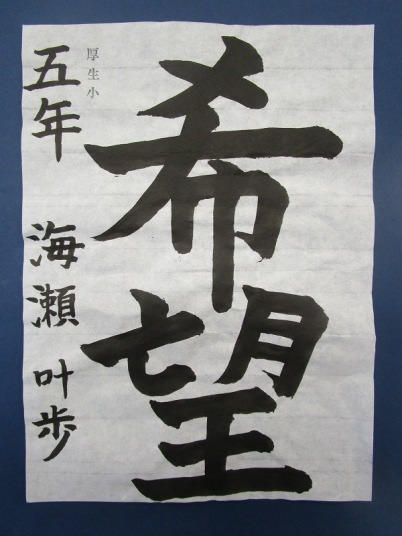 希望
厚生小
五年 海瀬 叶歩